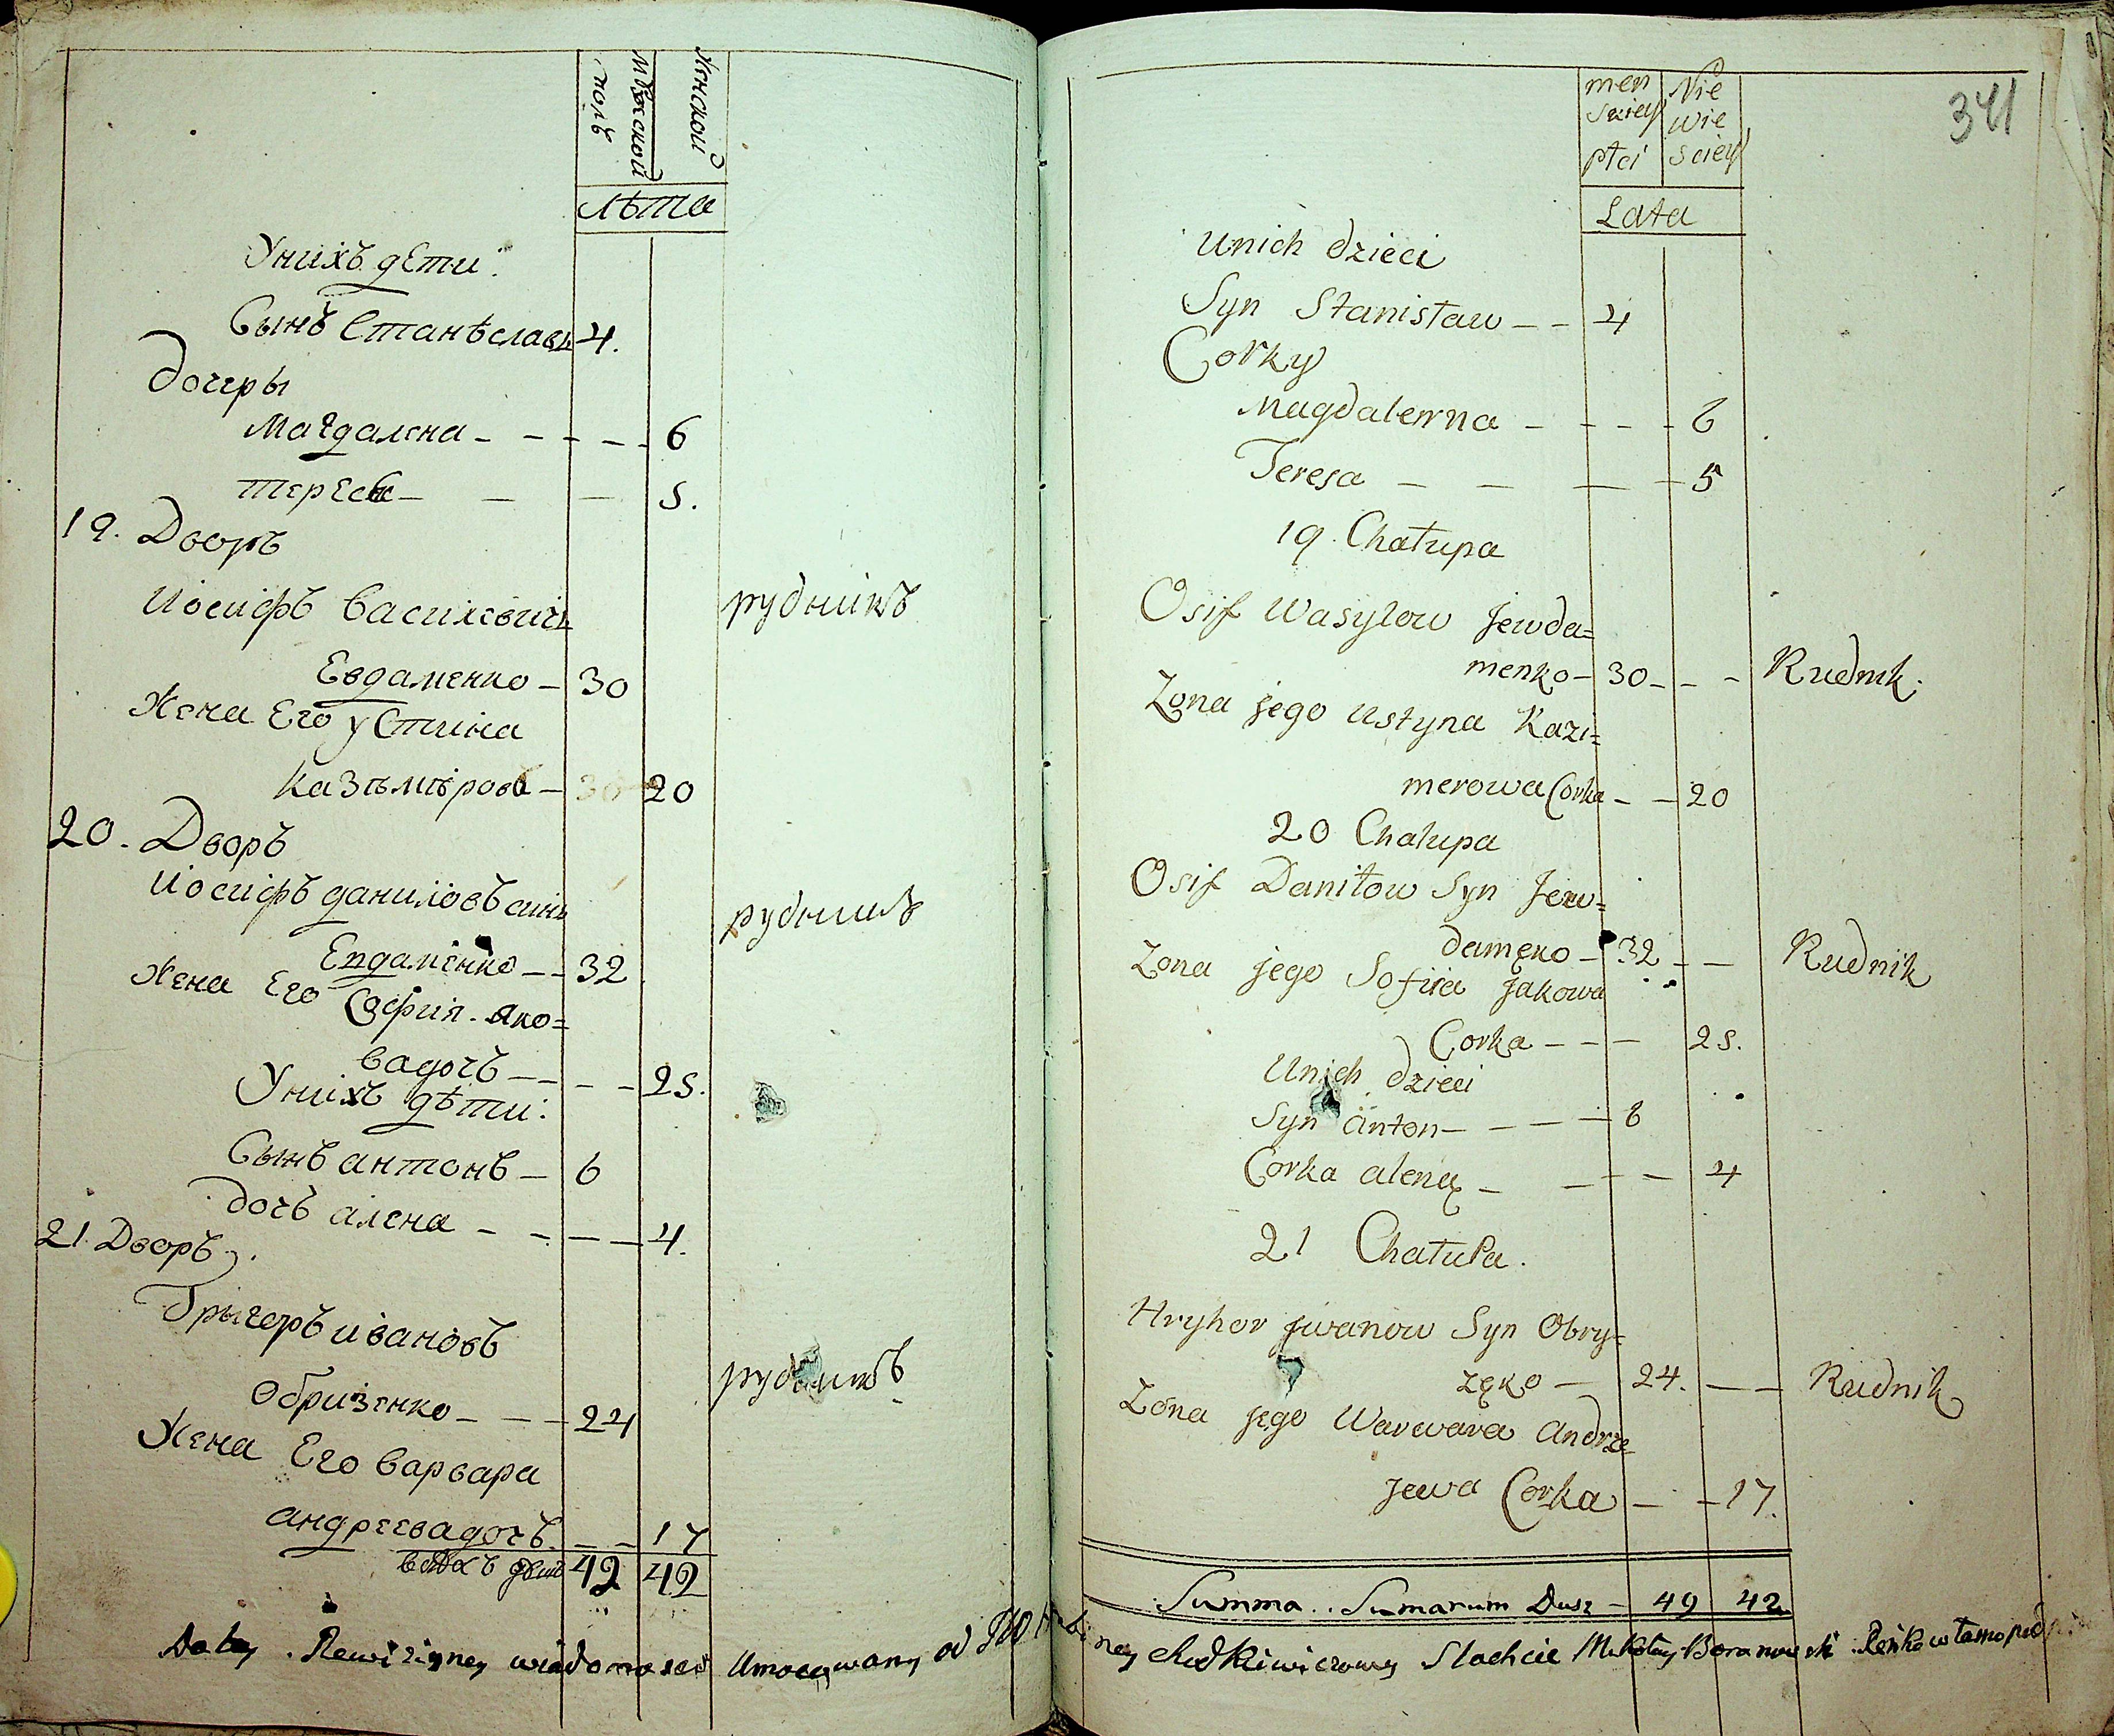 мужской
полъ
женской
лѣта
Унихъ дѣти
Сынъ Станѣславъ 4.
дочеры
Магдалена - - - - - 6
тереса - - - 5.
19. Дворъ
Иосифъ василевичъ рудникъ
Евдаменко - 30
Жена Его устина
казѣмѣрова - 20
20. Дворъ
Иосифъ даниловъ синъ рудникъ
Евдаменко - - 32
Жена Его София яко=
вадочъ - - - - 25.
Унихъ дѣти:
Сынъ антонъ - 6
дочъ алена - - - - 4.
21. Дворъ.
Григоръ ивановъ
Обризенко - - - 24 рудникъ
Жена Его варвара
андреевадочъ. - - 17
42 42
341
men
skiey
płci
Nie
wie
sciey
Lata
Unich dzieci
Syn Stanisław - - 4
Corky
Magdalenna - - - - 6
Teresa - - - - 5
19. Chałupa
Osif Wasylow Jewda=
menko - 30 - - - Rudnik.
Zona jego Ustyna Kazi=
merowa Corka - - 20
20 Chałupa
Osif Daniłow Syn Jew=
damęko - 32 - - Rudnik
Zona jego Sofiia Jakowa
Corka - - - 25.
Unich dzieci
Syn anton - - - - 6
Corka alena - - - - 4
21 Chałupa.
Hryhor Jwanow Syn Obry=
zęko - 24. - - Rudnik
Zona jego Warwara Andrze
jewa Corka - - 17.
Summa .. Sumarum Dusz - 49 42
Do tey Rewizyiney wiadomosci Umocowany od chodkiewiczowey Slachcic Mikołay Boranowski Ręką własną